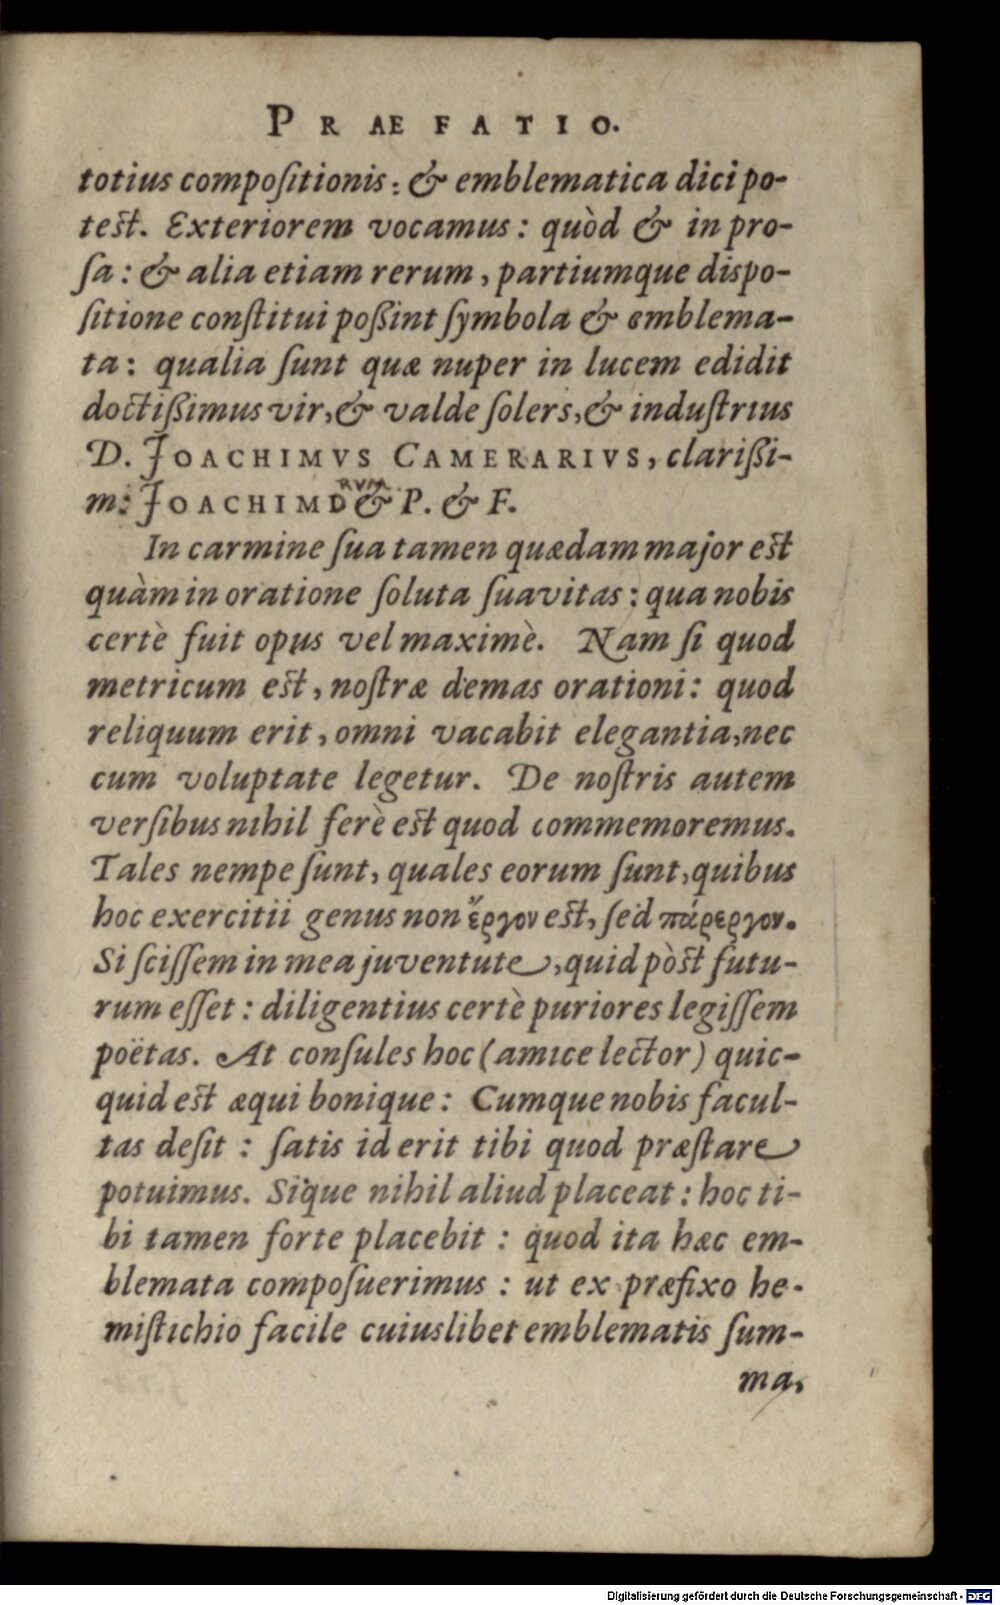 PRÆFATIO.
totius compoſitionis: & emblematica dici po-
teſt. Exteriorem vocamus: quòd & in pro-
ſa: & alia etiam rerum, partiumque diſpo-
ſitione conſtitui poßint ſymbola & emblema-
ta: qualia ſunt quæ nuper in lucem edidit
doctißimus vir, & valde ſolers, & induſtrius
D. JOACHIMVS CAMERARIVS, clarißi-
m: JOACHIMORVM & P. & F.
In carmine ſua tamen quædam major eſt
quàm in oratione ſoluta ſuavitas: qua nobis
certè fuit opus vel maximè. Nam ſi quod
metricum eſt, noſtræ demas orationi: quod
reliquum erit, omni vacabit elegantia, nec
cum voluptate legetur. De noſtris autem
verſibus nihil ferè eſt quod commemoremus.
Tales nempe ſunt, quales eorum ſunt, quibus
hoc exercitii genus non ἔργον eſt, ſed πάρεργον.
Si ſciſſem in mea juventute, quid pòſt futu-
rum eſſet: diligentius certè puriores legiſſem
poëtas. At conſules hoc (amice lector) quic-
quid eſt æqui bonique: Cumque nobis facul-
tas deſit: ſatis id erit tibi quod præſtare
potuimus. Sique nihil aliud placeat: hoc ti-
bi tamen forte placebit: quod ita hæc em-
blemata compoſuerimus: ut ex præfixo he-
miſtichio facile cuiuslibet emblematis ſum-
ma,
Digitalisierung gefördert durch die Deutsche Forschungsgemeinschaft - DFG